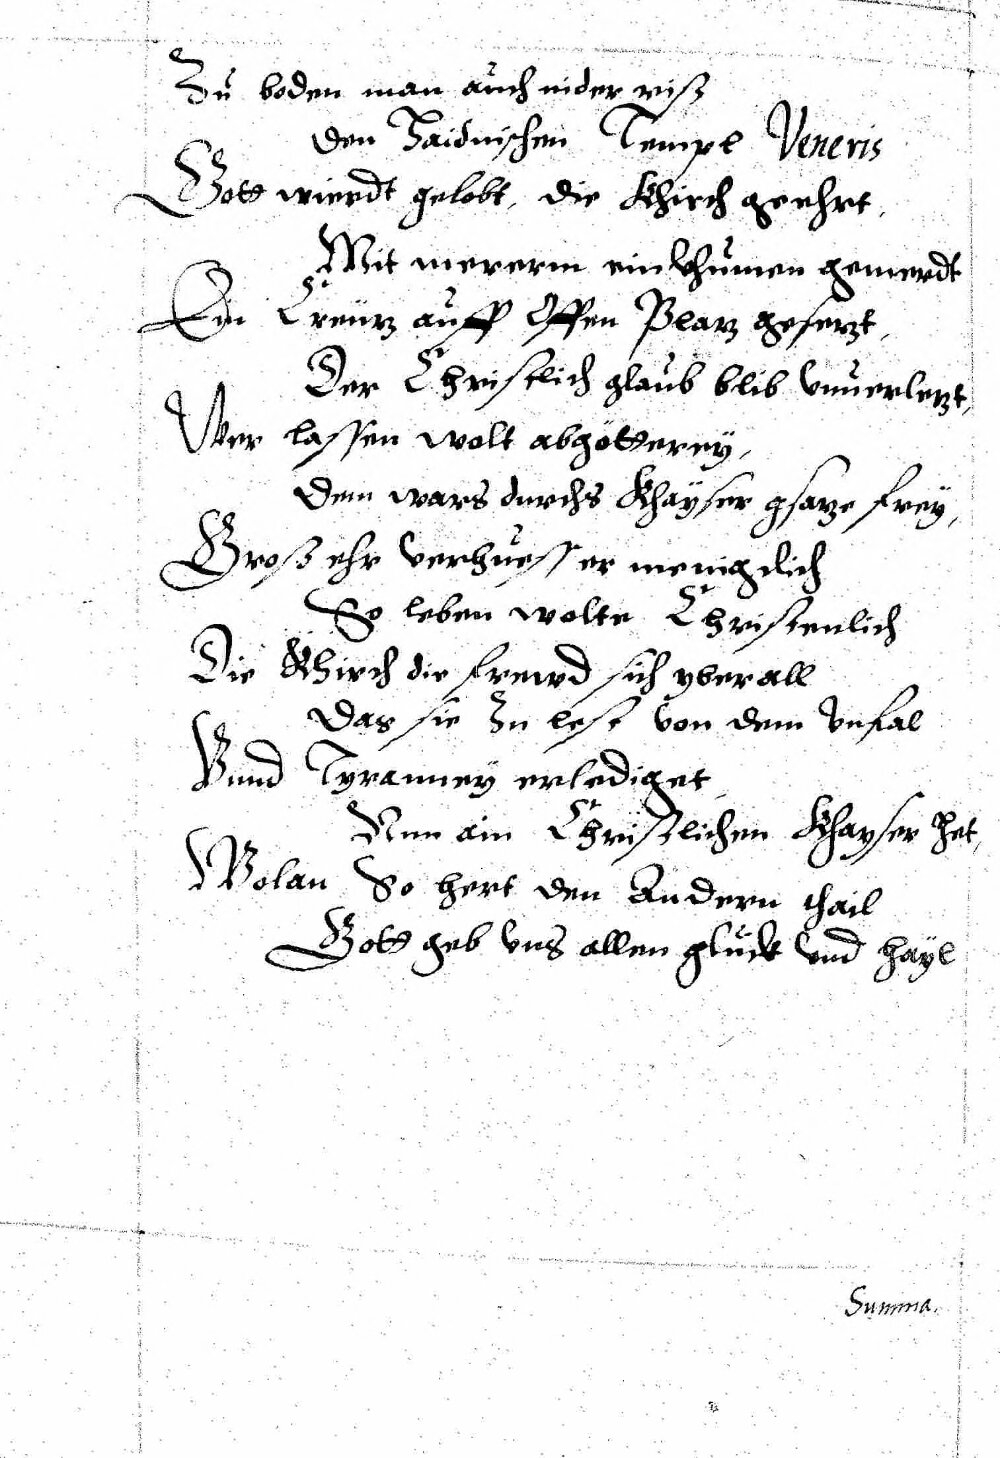 Zů boden man aůch nider risz
den Haidnischen Templ Veneris
Gott wierdt gelobt, die Khirch geehrt,
Mit mererm einkhůmen gemerdt
Ein Creütz aůff Offen Platz gesetzt,
Der Christlich glaůb blib vnůerletzt,
Wer lassen wolt abgötterey,
Dem wars durchs Khaÿser gsatze freÿ,
Groß ehr verhůess er menigclich
So leben wolte Christenlich
Die Khirch die frewd sich yberall
Das sie Zu lest von dem vnfal
Vnnd Tyranneÿ erlediget
Nun ain Christlichen Khayser het,
Wolan So hert den Andern thail
Gott geb vns allen glůckh vnd haÿl
Summa.